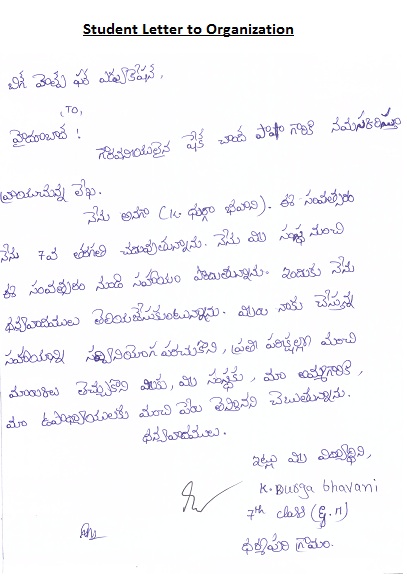 Student Letter to Organization
బిగ్ హెల్ప్ ఫర్ ఎడ్యుకేషన్,
To,
హైదరాబాద్ !
గౌరవనీయులైన షేక్ చాంద్ పాషా గారికి నమస్కరిస్తూ
వ్రాయుచున్న లేఖ.
నేను అనగా (K. దుర్గా భవాని). ఈ సంవత్సరం
నేను 7వ తరగతి చదువుతున్నాను. నేను మీ సంస్థ నుంచి
ఈ సంవత్సరం నుండి సహాయం పొందుతున్నాను. ఇందుకు నేను
ధన్యవాదములు తెలియజేసుకుంటున్నాను. మీరు నాకు చేస్తున్న
సహాయాన్ని సద్వినియోగ పరచుకొని, ప్రతి పరీక్షల్లో మంచి
మార్కులు తెచ్చుకొని మీకు, మీ సంస్థకు, మా అమ్మగారికి,
మా ఉపాధ్యాయులకు మంచి పేరు తెస్తానని చెబుతున్నాను.
ధన్యవాదములు.
ఇట్లు మీ విద్యార్థిని,
K. Durga bhavani
7th class
ధర్మాపురి గ్రామం.